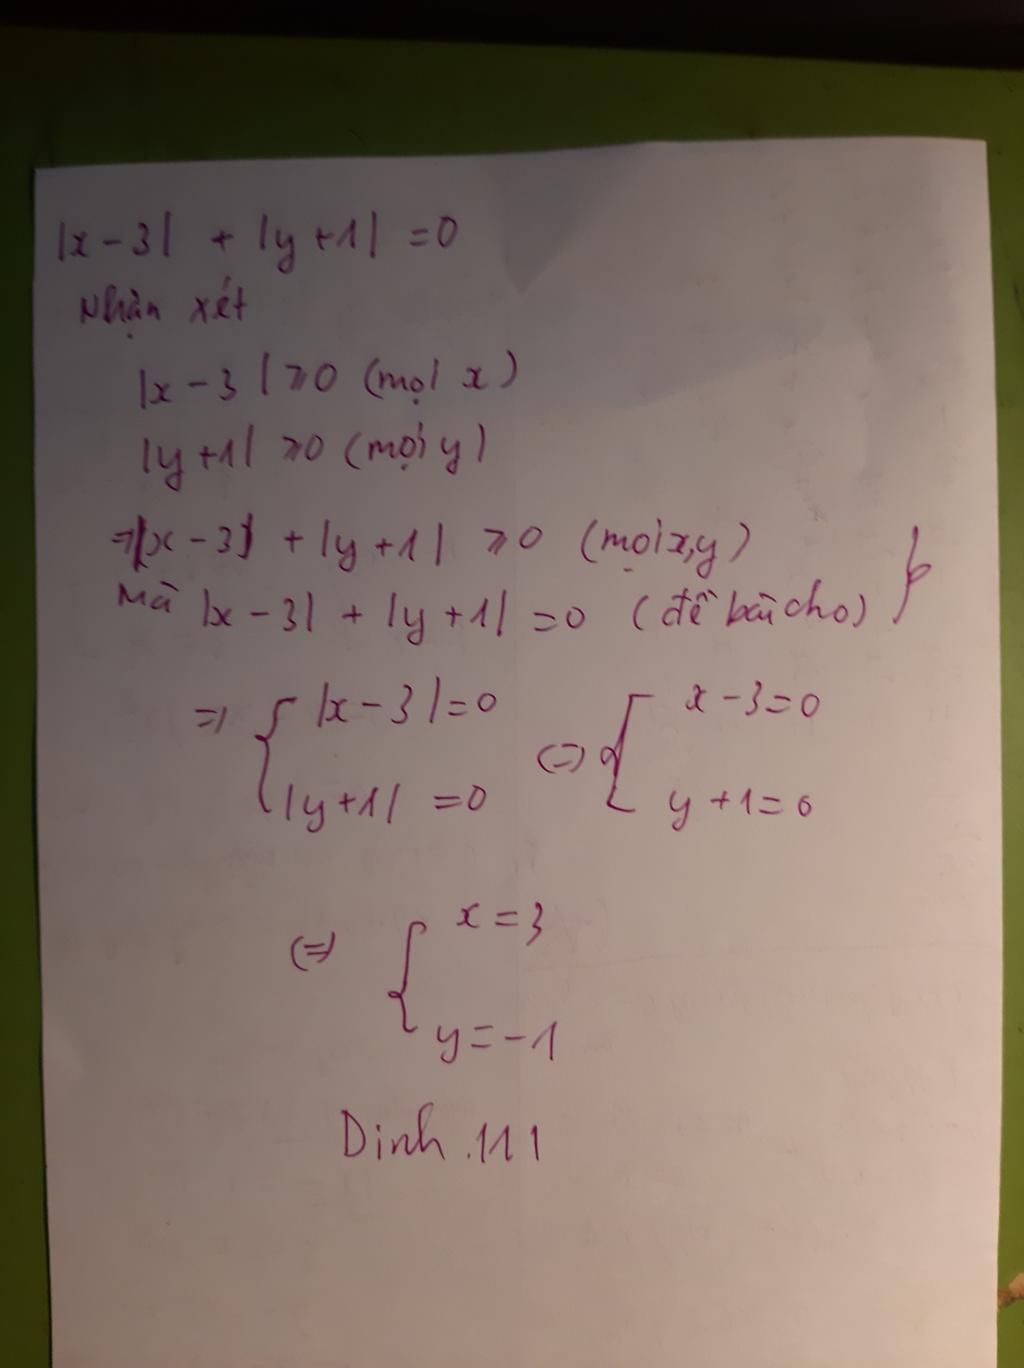 |x-3| + |y+1| = 0
Nhận xét
|x-3| ⩾ 0 (mọi x)
|y+1| ⩾ 0 (mọi y)
=> |x-3| + |y+1| ⩾ 0 (mọi x,y)
Mà |x-3| + |y+1| = 0 (đề bài cho) }
=> { |x-3| = 0 <=> { x-3=0
|y+1| = 0 y+1=0
<=> { x = 3
y = -1
Dinh.111